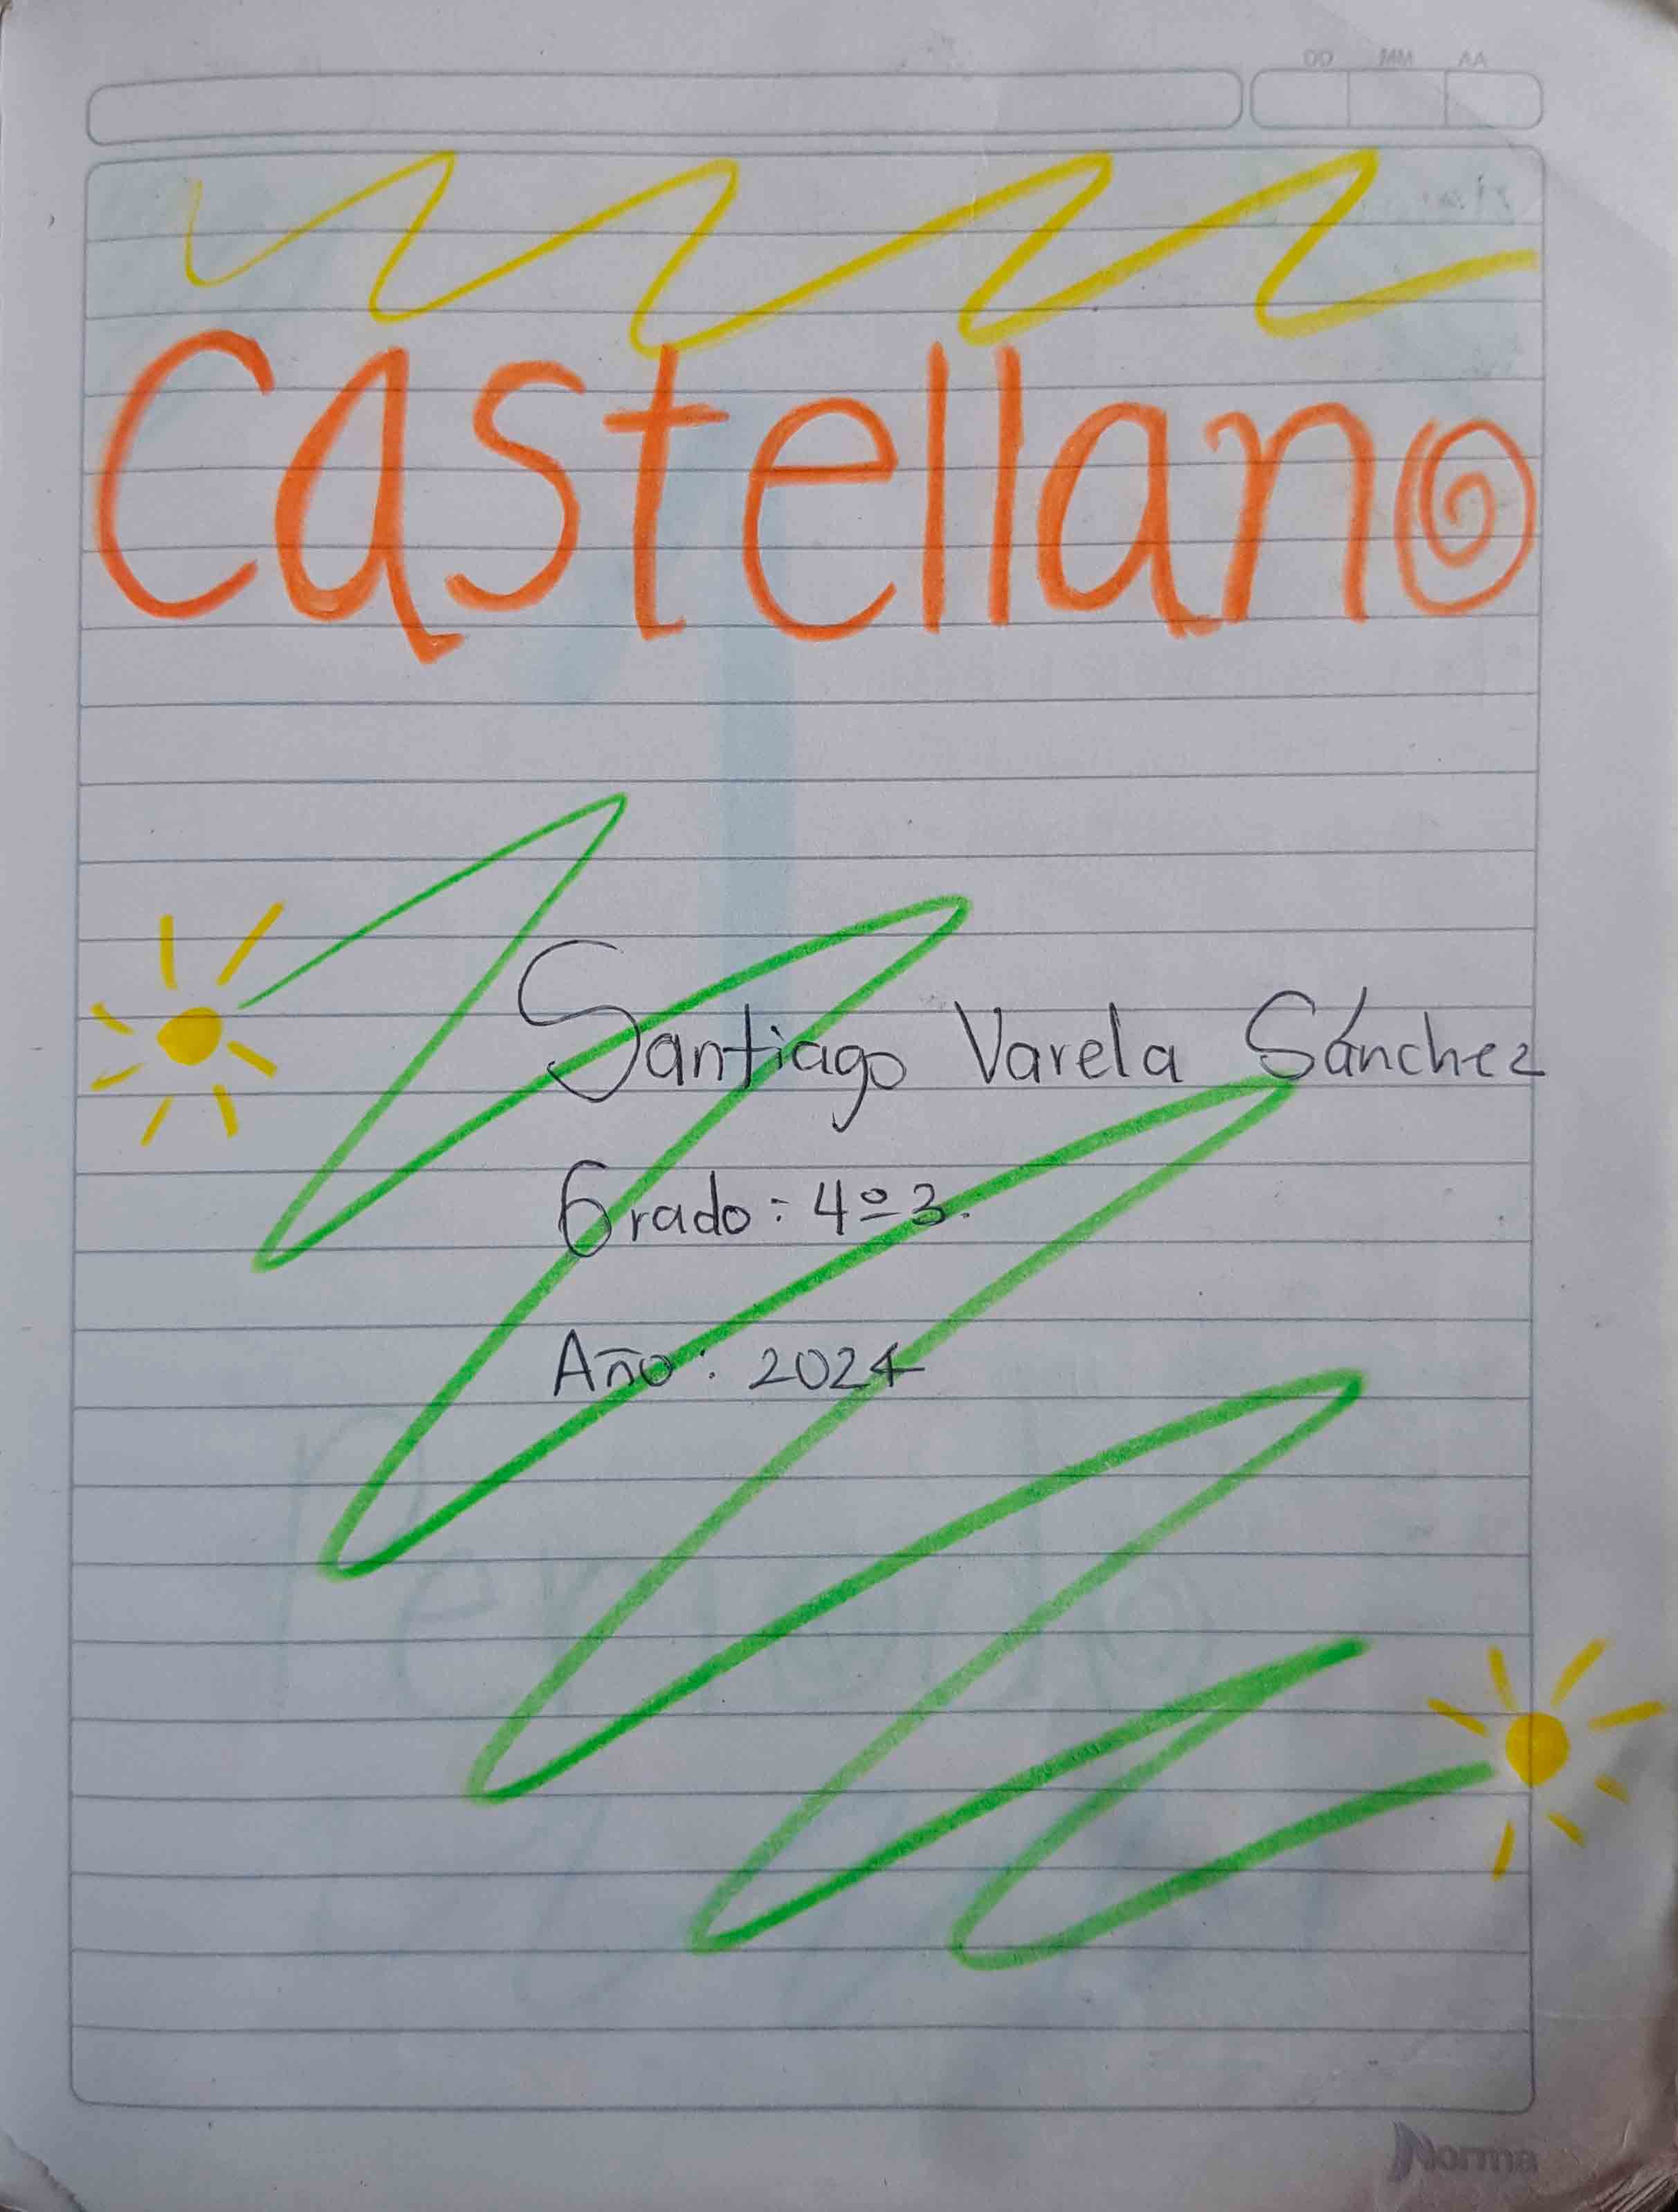 DD MM AA
Castellano
Santiago Varela Sánchez
Grado: 4º3.
Año: 2024
Periodo
Norma